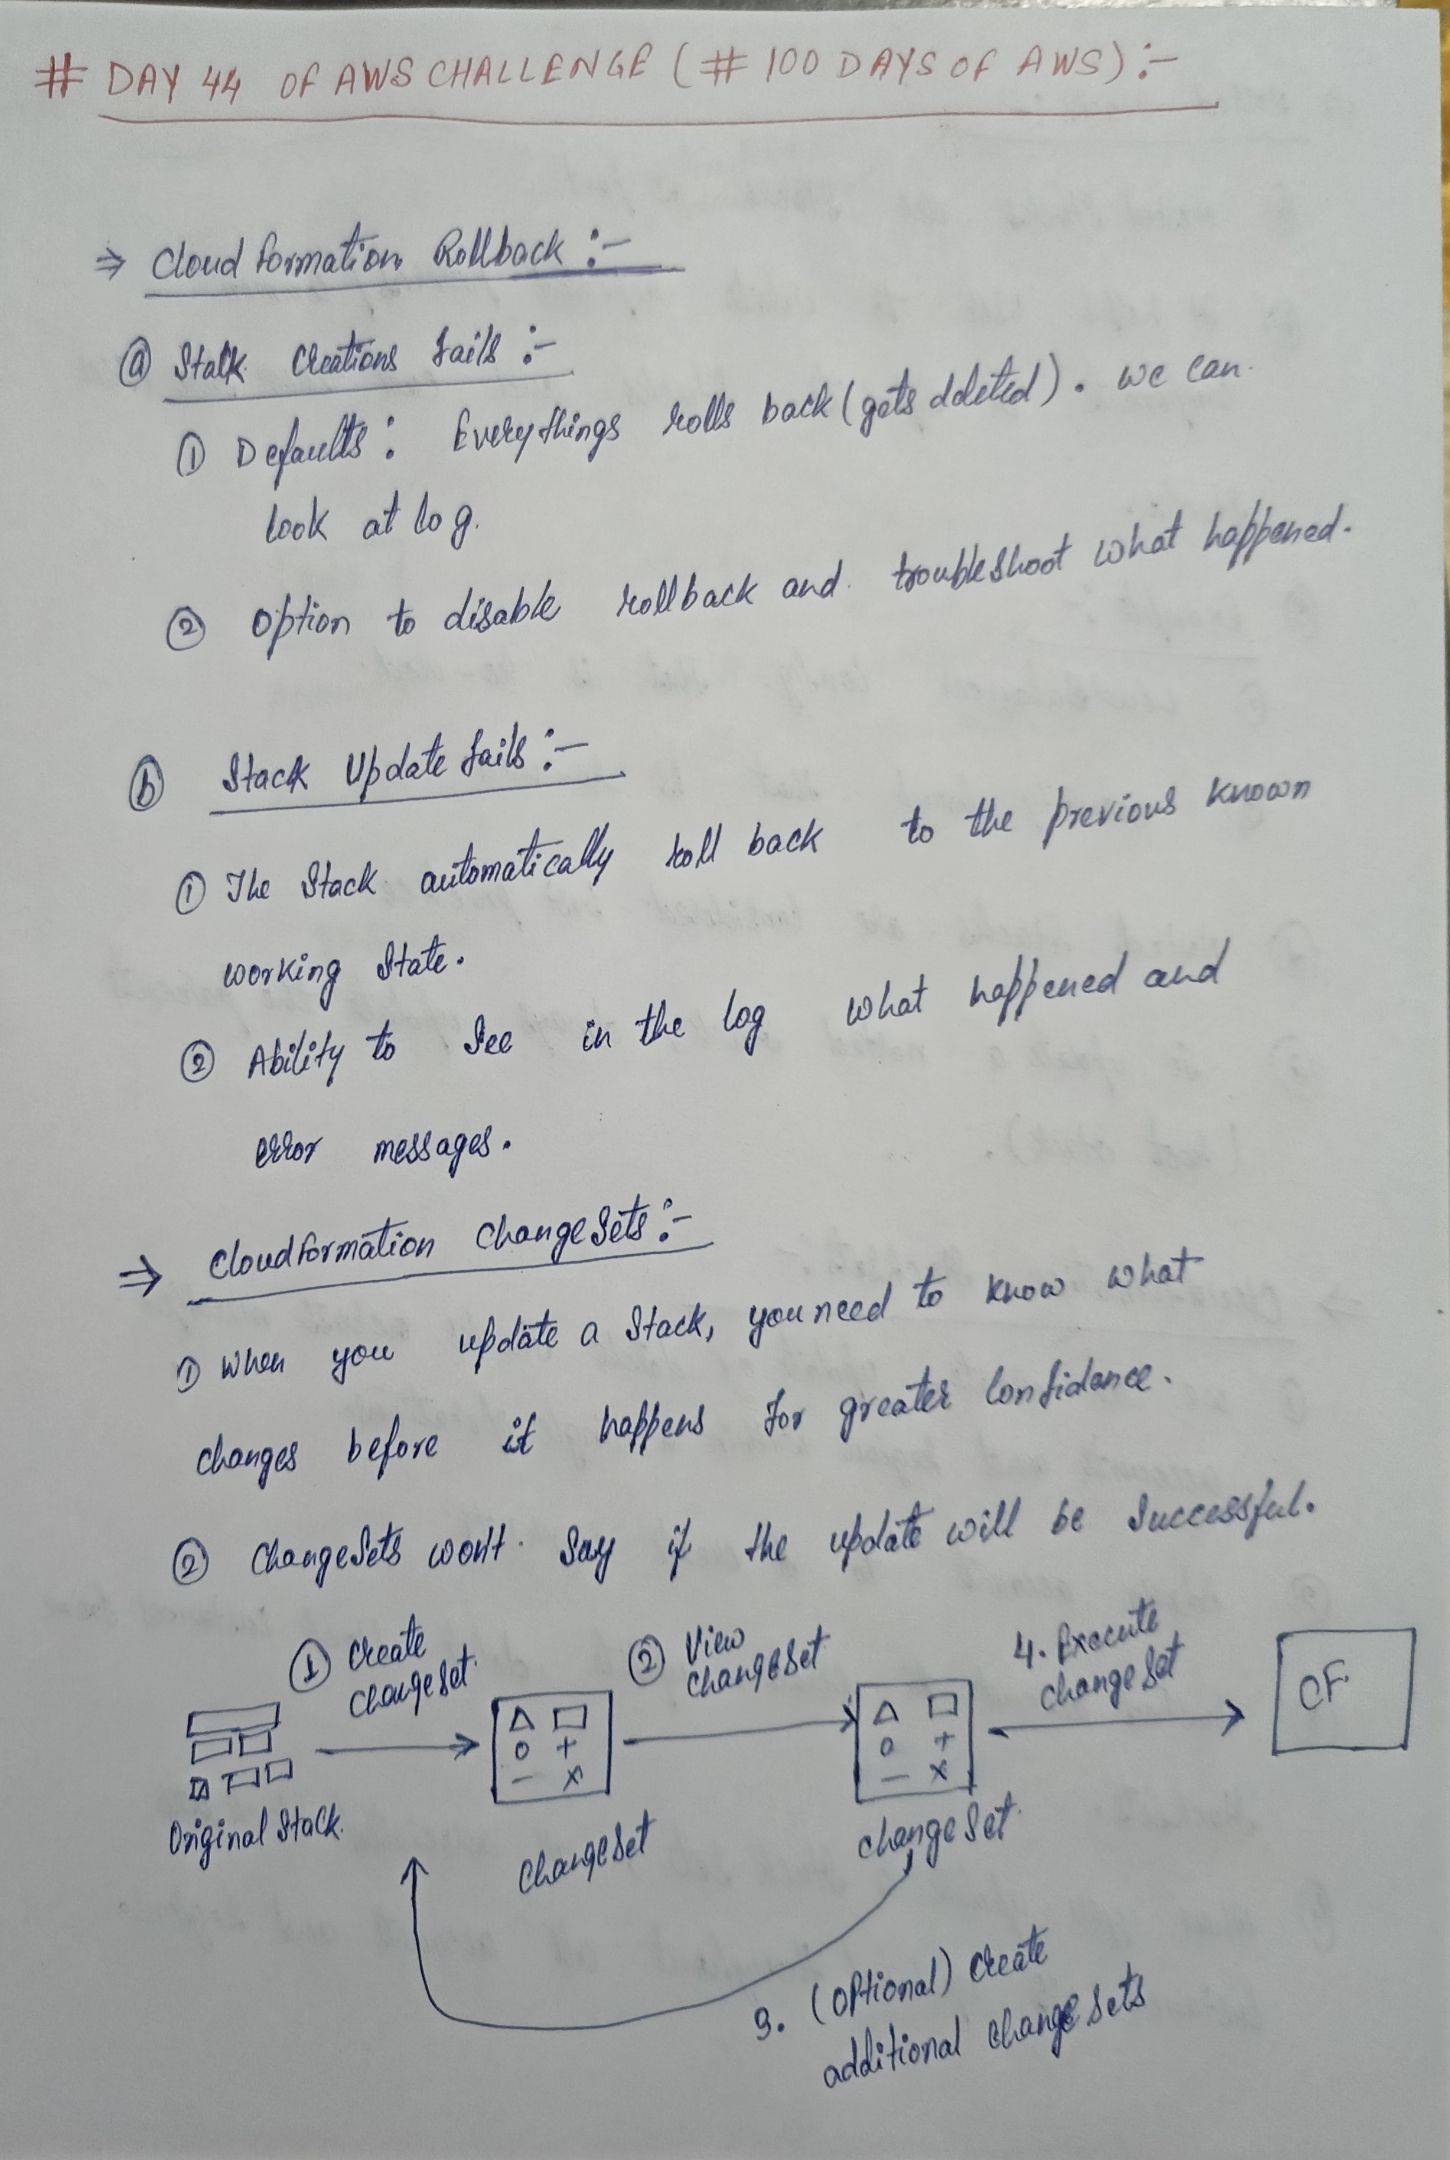 # DAY 44 OF AWS CHALLENGE (# 100 DAYS OF AWS) :-
⇒ Cloud formation Rollback :-
(a) Stack Creations fails :-
① Defaults : Everythings rolls back (gets deleted). we can
look at log.
② Option to disable rollback and troubleshoot what happened.
(b) Stack Update fails :-
① The Stack automatically roll back to the previous known
working State.
② Ability to See in the log what happened and
error messages.
⇒ Cloudformation ChangeSets :-
① When you update a Stack, you need to know what
changes before it happens for greater Confidance.
② ChangeSets won't Say if the update will be Successful.
① Create
ChangeSet
② View
ChangeSet
4. Execute
changeSet
CF
Original Stack.
ChangeSet
changeSet
3. (Optional) Create
additional changeSets